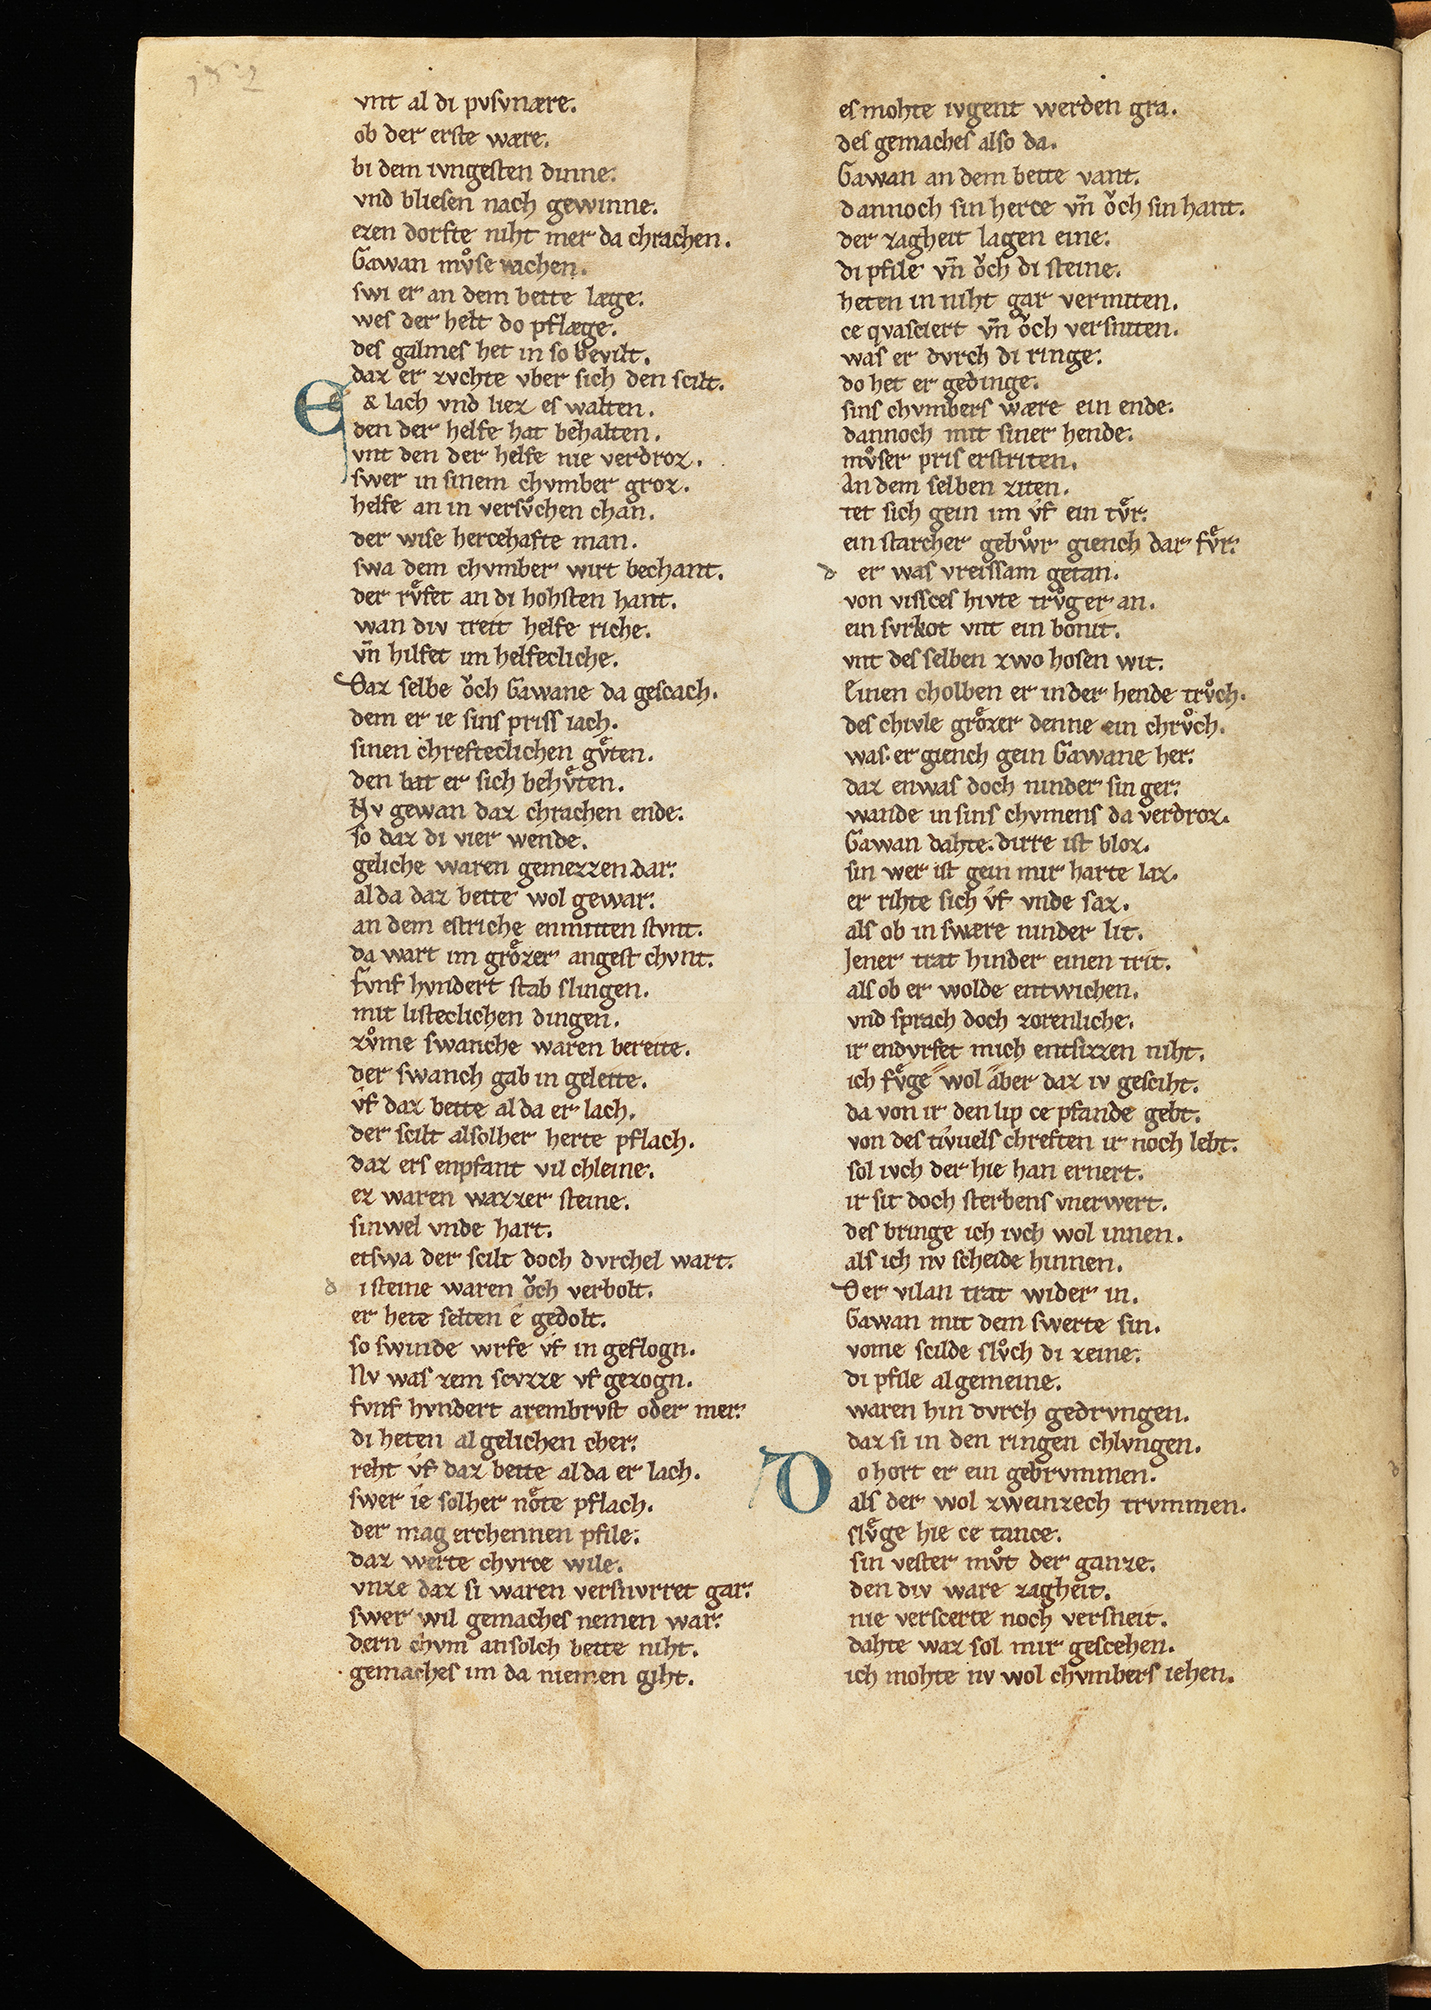 vnt al di pvsvnære.
ob der erste wære.
bi dem ivngesten dinne.
vnd bliesen nach gewinne.
ezen dorfte niht mer da chrachen.
Gawan mvͦse wachen.
swi er an dem bette læge.
wes der helt do pflæge.
des galmes het in so bevilt.
daz er zvchte vber sich den scilt.
Er lach vnd liez es walten.
den der helfe hat behalten.
vnt den der helfe nie verdroz.
swer in sinem chvmber groz.
helfe an in versvͦchen chan.
der wise hercehafte man.
swa dem chvmber wirt bechant.
der rvͤfet an di hohsten hant.
wan div treit helfe riche.
vn̄ hilfet im helfecliche.
Daz selbe oͮch Gawane da gescach.
dem er ie sins priss iach.
sinen chrefteclichen gvͤten.
den bat er sich behvͤten.
Nv gewan daz chrachen ende.
so daz di vier wende.
geliche waren gemezzen dar.
al da daz bette wol gewar.
an dem estriche enmitten stvnt.
da wart im groͤzer angest chvnt.
fvnf hvndert stab slingen.
mit listeclichen dingen.
zvͦme swanche waren bereite.
der swanch gab in geleite.
vf daz bette al da er lach.
der scilt alsolher herte pflach.
daz ers enpfant vil chleine.
ez waren wazzer steine.
sinwel vnde hart.
etswa der scilt doch dvrchel wart.
di steine waren oͮch verbolt.
er hete selten e gedolt.
so swinde wrfe vf in geflogn.
Nv was zem scvzze vf gezogn.
fvnf hvndert arembrvst oder mer.
di heten al gelichen cher.
reht vf daz bette al da er lach.
swer ie solher noͤte pflach.
der mag erchennen pfile.
daz werte chvrce wile.
vnze daz si waren versnvrret gar.
swer wil gemaches nemen war.
dern chvm an solch bette niht.
gemaches im da niemen giht.
es mohte ivgent werden gra.
des gemaches also da.
Gawan an dem bette vant.
dannoch sin herce vn̄ oͮch sin hant.
der zagheit lagen eine.
di pfile vn̄ oͮch di steine.
heten in niht gar vermiten.
ce qvasciert vn̄ oͮch versniten.
was er dvrch di ringe.
do het er gedinge.
sins chvmbers wære ein ende.
dannoch mit siner hende.
mvͦser pris erstriten.
An dem selben ziten.
tet sich gein im vf ein tvͤr.
ein starcher gebvͦwr giench dar fvͤr.
der was vreissam getan.
von vissces hivte trvͦg er an.
ein svrkot vnt ein bonit.
vnt des selben zwo hosen wit.
Einen cholben er in der hende trvͦch.
des chivle groͤzer denne ein chrvͦch.
was er giench gein Gawane her.
daz enwas doch ninder sin ger.
wande in sins chvmens da verdroz.
Gawan dahte. dirre ist bloz.
sin wer ist gein mir harte laz.
er rihte sich vf vnde saz.
als ob in swære ninder lit.
Jener trat hinder einen trit.
als ob er wolde entwichen.
vnd sprach doch zorenliche.
ir endvrfet mich entsizzen niht.
ich fvͤge wol aber daz iv gesciht.
da von ir den lip ce pfande gebt.
von des tivuels chreften ir noch lebt.
sol ivch der hie han ernert.
ir sit doch sterbens vnerwert.
des bringe ich ivch wol innen.
als ich nv scheide hinnen.
Der vilan trat wider in.
Gawan mit dem swerte sin.
vome scilde slvͦch di zeine.
di pfile algemeine.
waren hin dvrch gedrvngen.
daz si in den ringen chlvngen.
Do hort er ein gebrvmmen.
als der wol zweinzech trvmmen.
slvͤge hie ce tance.
sin vester mvͦt der ganze.
den div ware zagheit.
nie verscerte noch versneit.
dahte waz sol mir gescehen.
ich mohte nv wol chvmbers iehen.